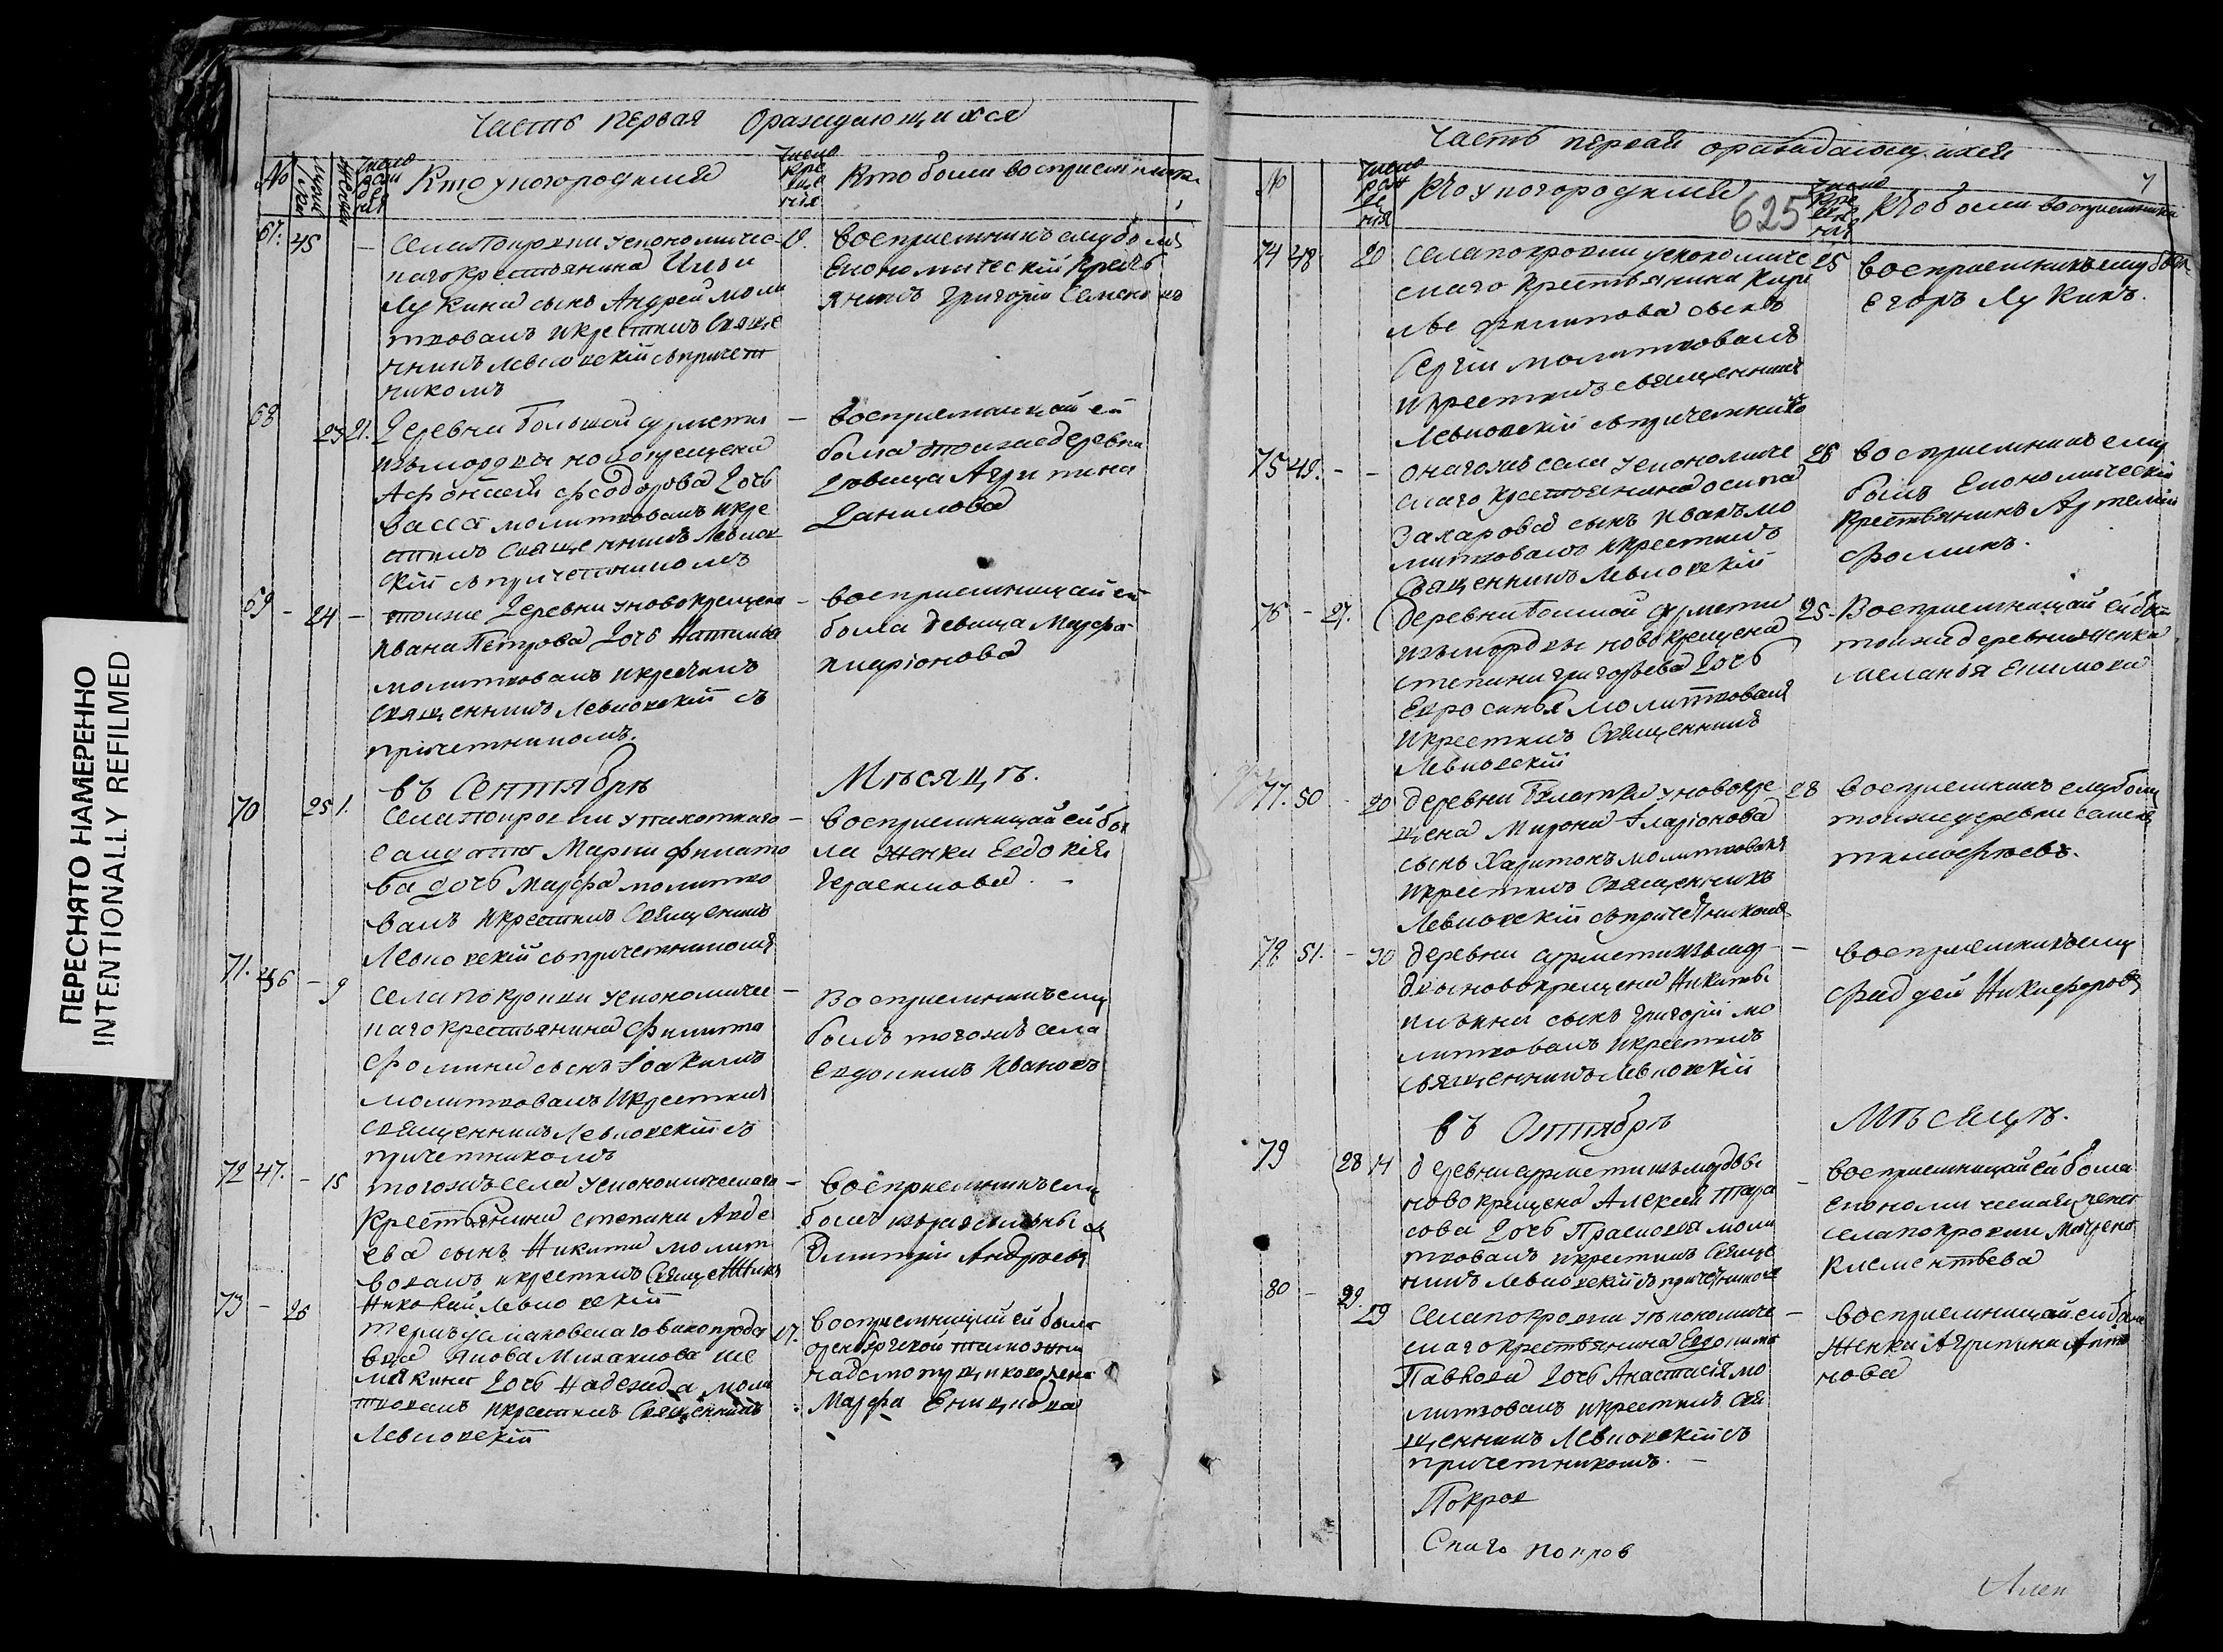 ПЕРЕСНЯТО НАМЕРЕННО
INTENTIONALLY REFILMED
Часть первая О раждающихся
№
мужеска
женска
число рожденія
Кто у кого родился
число крещенія
Кто были восприемники
67. 45 –
села Покровки у економичес-
каго крестьянина Ильи
Лукина сынъ Андрей моли
твовалъ и крестилъ Священ
никъ Левновскій съ причет
никомъ
восприемникъ ему былъ
Економическій Кресть
янинъ Григорій Семеновъ
68 23 21.
Деревни Большой Сурмети
изъ мордвы новокрещена
Афонасея Феодорова дочь
Васса молитвовалъ и кре
стилъ Священникъ Левнов
скій съ причетникомъ
–
восприемницай ей
была тоиже деревни
девица Агрипина
Данилова
69 – 24 –
тоиже Деревни у новокрещена
Ивана Петрова дочь Наталья
молитвовалъ и крестилъ
Священникъ Левновскій съ
причетникомъ.
–
восприемницай ей
была девица Марфа
Иларіонова
въ Сентябрѣ Мѣсяцѣ.
70 25 1.
Села Покровки у пахотнаго
салдата Марки Филато
ва дочь Марфа молитво
валъ и крестилъ Священникъ
Левновскій съ причетникомъ
–
восприемницай ей бы
ла Женка Евдокія
Герасимова. –
71. 46 – 9
села Покровки у економичес
каго крестьянина Филипа
Фомина сынъ Іоакимъ
молитвовалъ и крестилъ
священникъ Левновскій съ
причетникомъ
–
Восприемникъ ему
былъ тогожъ села
Евдокимъ Ивановъ
72 47. – 15
тогожъ села у економическаго
Крестьянина Степана Авде
ева сынъ Никита молит
вовалъ и крестилъ Священникъ
Левновскій
–
восприемникъ ему
былъ
Димитрій Андреевъ
73 – 26
Якова Михаилова Ше
дочь Надежда моли
твовалъ и крестилъ Священникъ
Левновскій
17.
восприемницай ей была
оренбургской таможни
жена
Марфа
Часть первая о раждающихся
625
7
№
число рожденія
Кто у кого родился
число крещенія
Кто были восприемники
74 48 20
села Покровки у економиче
скаго Крестьянина Кири
лы Филипова сынъ
Сергій молитвовалъ
и крестилъ священникъ
Левновскій съ причетнико
25
восприемникъ ему былъ
Егоръ Лукинъ.
75 49. – –
онагожъ села у економиче
скаго крестьянина Осипа
Захарова сынъ Иванъ мо
литвовалъ и крестилъ
Священникъ Левновскій
26
восприемникъ ему
былъ Економическій
Крестьянинъ Артемій
Фоминъ.
76 – 27.
Деревни Болшой Сурмети
изъ мордвы новокрещена
Степана Григорьева дочь
Евросинья Молитвовалъ
и крестилъ Священникъ
Левновскій
25.
Восприемницай ей была
тоижа деревни женка
Меланья Екимова
77. 50 – 20
деревни у новокре
щена Мирона Иларіонова
сынъ Харитонъ молитвовалъ
и крестилъ Священникъ
Левновскій съ причетникомъ
28
восприемникъ ему былъ
тоиже деревни
тимофѣевъ.
78 51. – 30
деревни Сурмети изъ мор
двы новокрещена Никиты
Ильина сынъ Григорій мо
литвовалъ и крестилъ
священникъ Левновскій
–
восприемникъ ему
Фаддей Никифоровъ
въ Октябрѣ Мѣсяцѣ.
79 28 14
деревни Сурмети изъ мордвы
новокрещена Алексея Тара
сова дочь Прасковья моли
твовалъ и крестилъ Священ
никъ Левновскій съ причетником
–
восприемницай ей была
економическая женка
села покровки
Клементьева
80 – 29. 29
Села покровки у економиче
скаго крестьянина Евдокима
Павлова дочь Анастасія мо
литвовалъ и крестилъ Свя
щенникъ Левновскій съ
причетникомъ. –
–
восприемницай ей была
Женка Агрипина Анто
нова
Покров
Покров
Алек